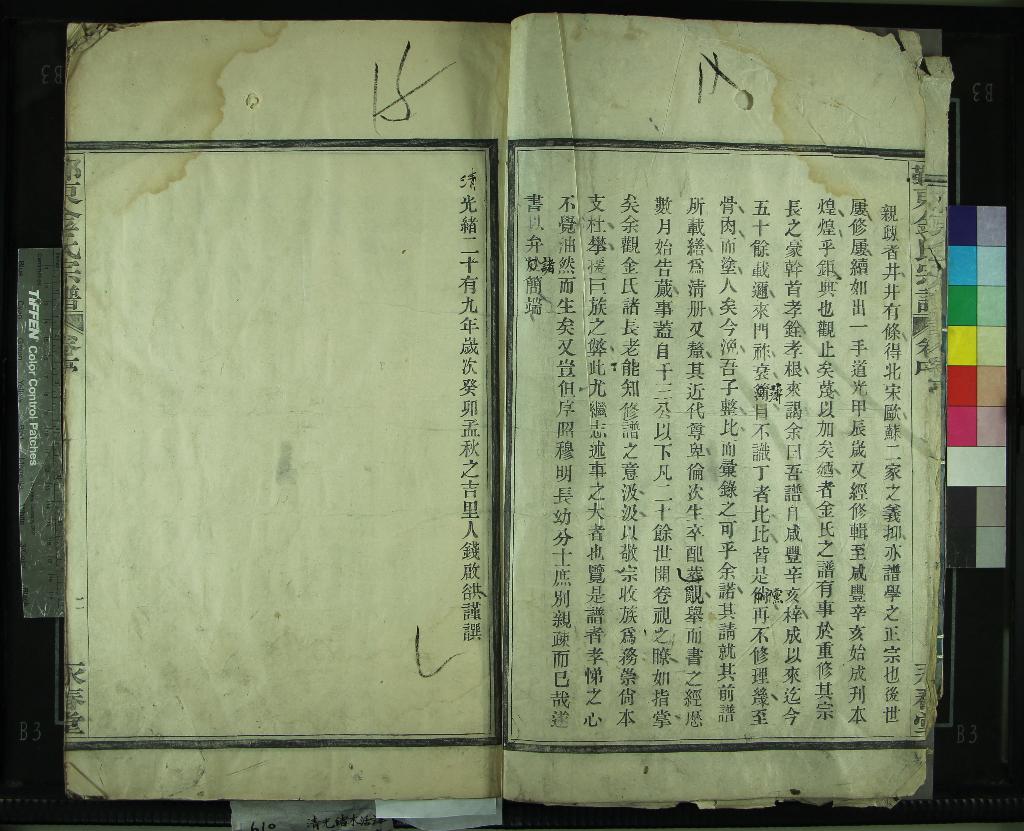 親疎者井井有條得北宋歐蘇二家之義抑亦譜學之正宗也後世
屢修屢續如出一手道光甲辰歲又經修輯至咸豐辛亥始成刋本
煌煌乎鉅典也觀止矣蔑以加矣續者金氏之譜有事於重修其宗
長之豪幹首孝銓孝根來謁余曰吾譜自咸豐辛亥梓成以來迄今
五十餘載邇來門祚衰薄目不識丁者比比皆是倘再不修理幾至
骨肉而塗人矣今浼吾子整比而彙錄之可乎余諾其請就其前譜
所載繕爲清册又釐其近代尊卑倫次生卒配葬觀舉而書之經歷
數月始告蕆事蓋自千三公以下凡二十餘世開卷視之瞭如指掌
矣余觀金氏諸長老能知修譜之意汲汲以敬宗收族爲務崇尙本
支杜攀援巨族之弊此尤繼志述事之大者也覽是譜者孝悌之心
不覺油然而生矣又豈但序昭穆明長幼分士庶別親疎而已哉遂
書以弁諸簡端
清光緒二十有九年歲次癸卯孟秋之吉里人錢啟謹譔
鄞東金氏宗譜
永春堂
TIFFEN Color Control Patches
B3
B3
B3
B3